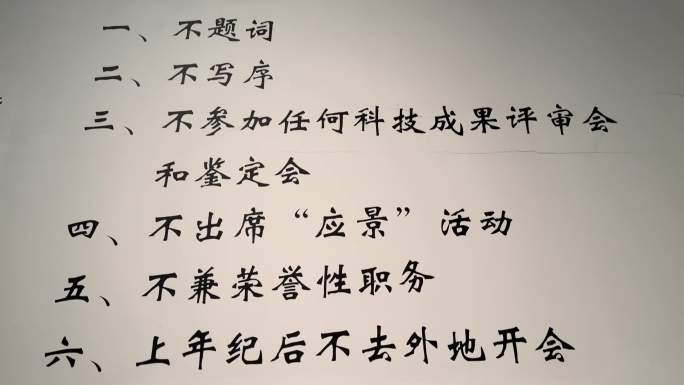 一、不题词
二、不写序
三、不参加任何科技成果评审会
和鉴定会
四、不出席“应景”活动
五、不兼荣誉性职务
六、上年纪后不去外地开会